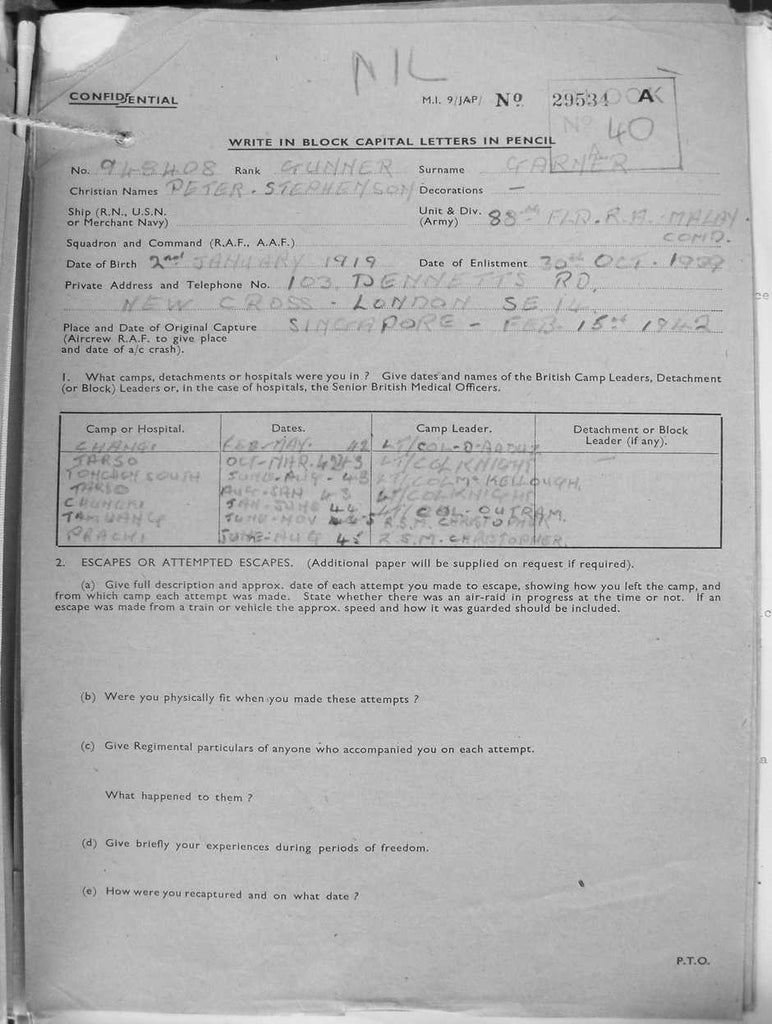 NIL
CONFIDENTIAL
M.I. 9/JAP/ No 29534 A
No 40
WRITE IN BLOCK CAPITAL LETTERS IN PENCIL
No. 948408 Rank GUNNER Surname GARNER
Christian Names PETER - STEPHENSON Decorations —
Ship (R.N., U.S.N. or Merchant Navy)
Unit & Div. (Army) 88th FLD. R.A. MALAY COMD.
Squadron and Command (R.A.F., A.A.F.)
Date of Birth 2nd JANUARY 1919 Date of Enlistment 30th OCT. 1939
Private Address and Telephone No. 103, DENNETTS RD,
NEW CROSS - LONDON SE 14
Place and Date of Original Capture SINGAPORE - FEB 15th 1942
(Aircrew R.A.F. to give place
and date of a/c crash).
1. What camps, detachments or hospitals were you in ? Give dates and names of the British Camp Leaders, Detachment
(or Block) Leaders or, in the case of hospitals, the Senior British Medical Officers.
Camp or Hospital. Dates. Camp Leader. Detachment or Block Leader (if any).
CHANGI FEB-MAY. 42 LT/COL-D-
TARSO OCT-MAR. LT/COL KNIGHT —
SOUTH JUNE-AUG - 43 LT/COL McKELLOUGH.
TARSO AUG-JAN 43 LT/COL KNIGHT
CHUNGKI JAN-JUNE 44 LT/COL-OUTRAM.
TAMUANG JUNE-NOV R.S.M. CHRISTOPHER
PRACHI JUNE-AUG 45 R.S.M. CHRISTOPHER.
2. ESCAPES OR ATTEMPTED ESCAPES. (Additional paper will be supplied on request if required).
(a) Give full description and approx. date of each attempt you made to escape, showing how you left the camp, and
from which camp each attempt was made. State whether there was an air-raid in progress at the time or not. If an
escape was made from a train or vehicle the approx. speed and how it was guarded should be included.
(b) Were you physically fit when you made these attempts ?
(c) Give Regimental particulars of anyone who accompanied you on each attempt.
What happened to them ?
(d) Give briefly your experiences during periods of freedom.
(e) How were you recaptured and on what date ?
P.T.O.